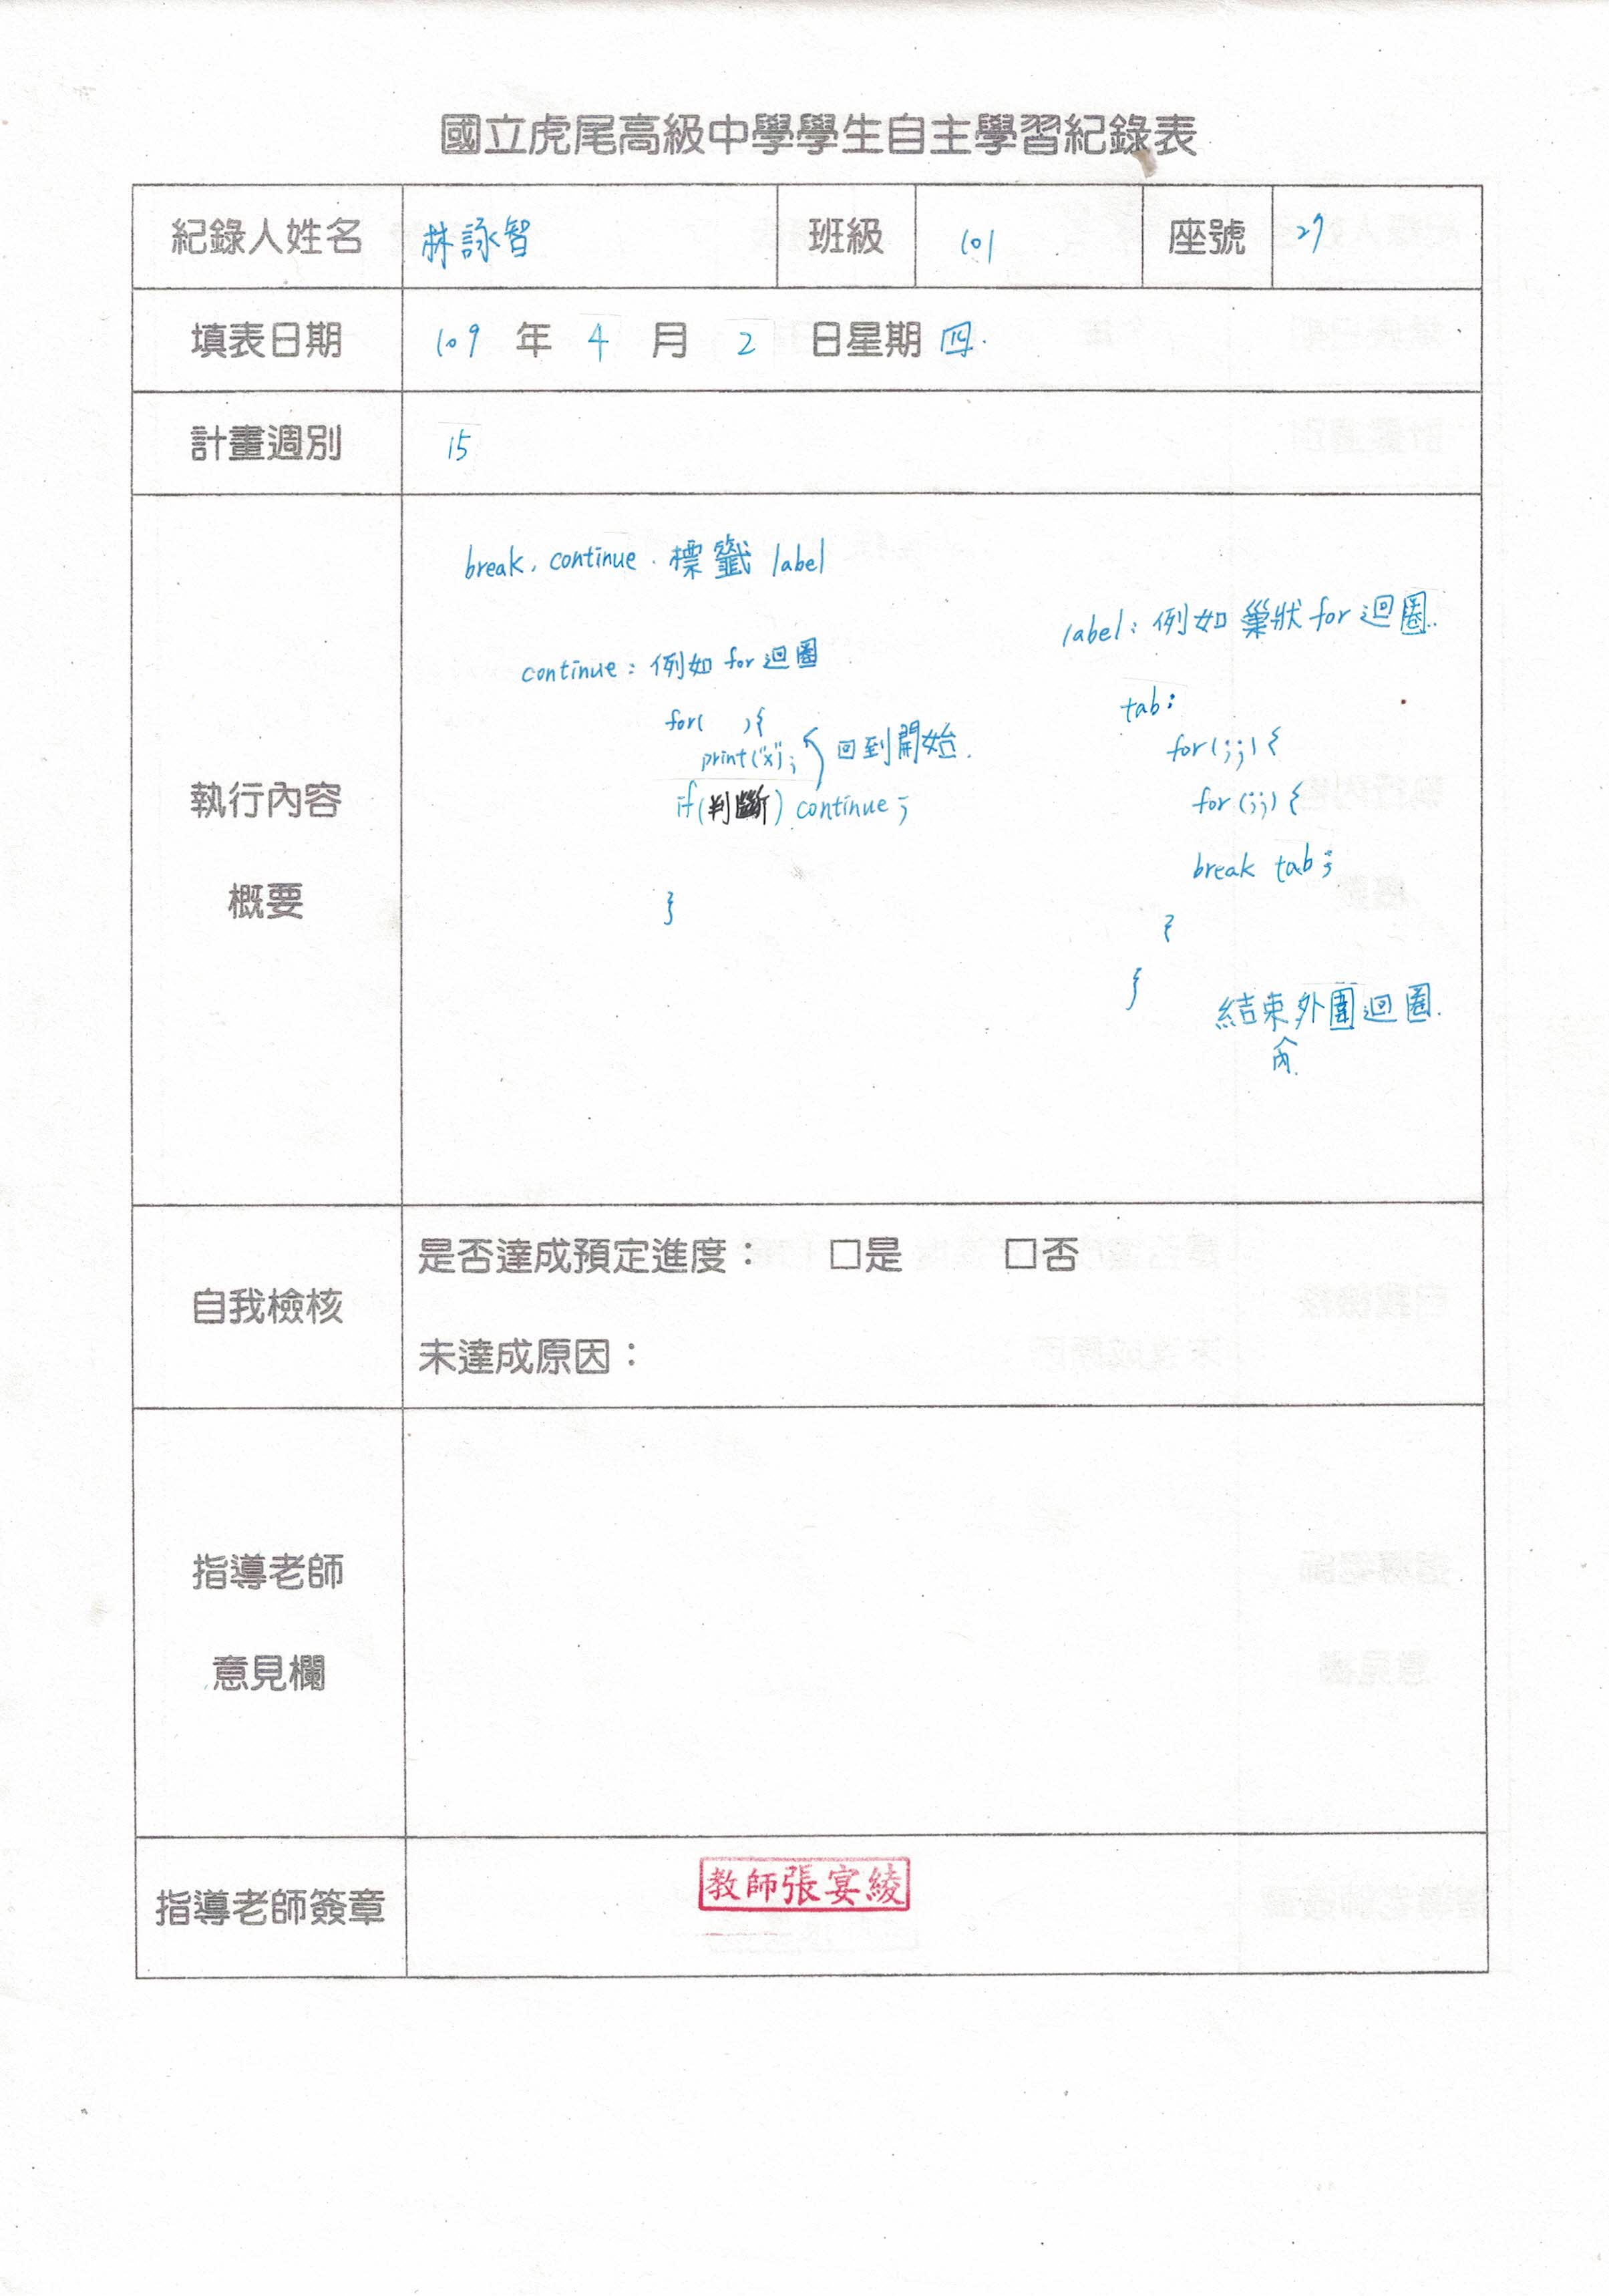 國立虎尾高級中學學生自主學習紀錄表
紀錄人姓名 林詠智 班級 101 座號 27
填表日期 109 年 4 月 2 日星期 四.
計畫週別 15
執行內容
概要
break, continue. 標籤 label
continue: 例如 for 迴圈
for( ){
print("x"); 回到開始.
if(判斷) continue;
}
label: 例如 巢狀 for 迴圈.
tab:
for(;;) {
for(;;) {
break tab;
}
}
結束外圍迴圈.
內
自我檢核
是否達成預定進度： □是 □否
未達成原因：
指導老師
意見欄
指導老師簽章 教師張宴綾